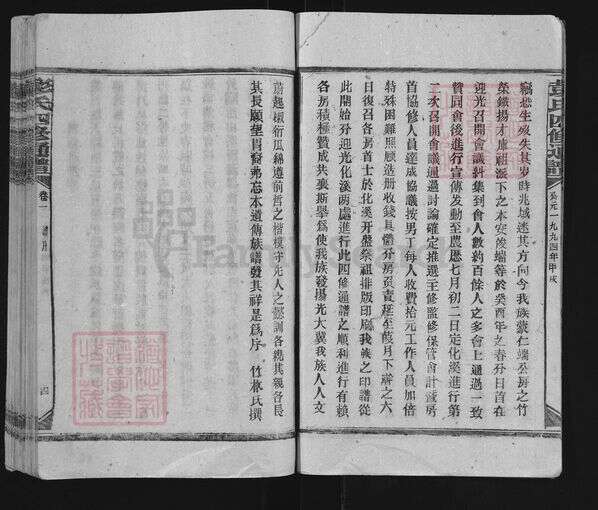 彭氏四修通譜
公元一九九四年甲戌
竊恐生歿失其歲時兆域迷其方向今我族蒙仁端公房之竹
榮鐵揚才庫祖派下之本安喚端等於癸酉年之春分日首在
迎光召開會議斜集到會人數約百餘人之多會上通過一致
贊同會後進行宣傳发動至農歷七月初二日定化溪進行第
二次召開會議通過討論確定推选主修監修保管会計業房
首協修人員達成協議按男丁每人收費拾元工作人員加倍
特殊困難照顧造册收錢具體分房負責延至臘月下澣之六
日復召各房首士於化溪开盤祭祖排版印刷我族之印譜從
此開始分迎光化溪两處進行此四修通譜之順利進行有賴
各房積極贊成共襄斯舉爲使我族發揚光大冀我族人人文
蔚起椒衍瓜綿遵前哲之楷模守先人之懿訓各親其親各長
其長願望胄裔弗忘本遺傳族譜發其祥是爲序　竹林氏撰
彭氏四修通譜
卷一
譜序
四